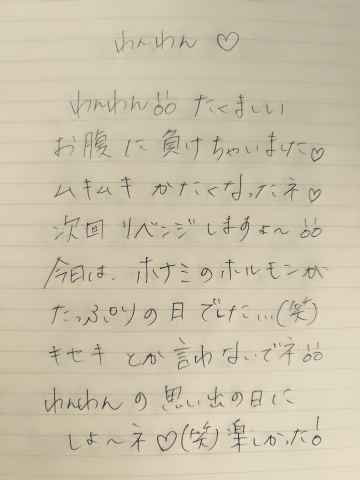 わんわん ♡
わんわん!! たくましい
お腹に負けちゃいました♡
ムキムキ かたくなったネ♡
次回 リベンジしますょ〜!!
今日は、ホナミのホルモンが
たっぷりの日でした...(笑)
キセキとか言わないでネ!!
わんわんの思い出の日に
しよ〜ネ♡(笑)楽しかった!